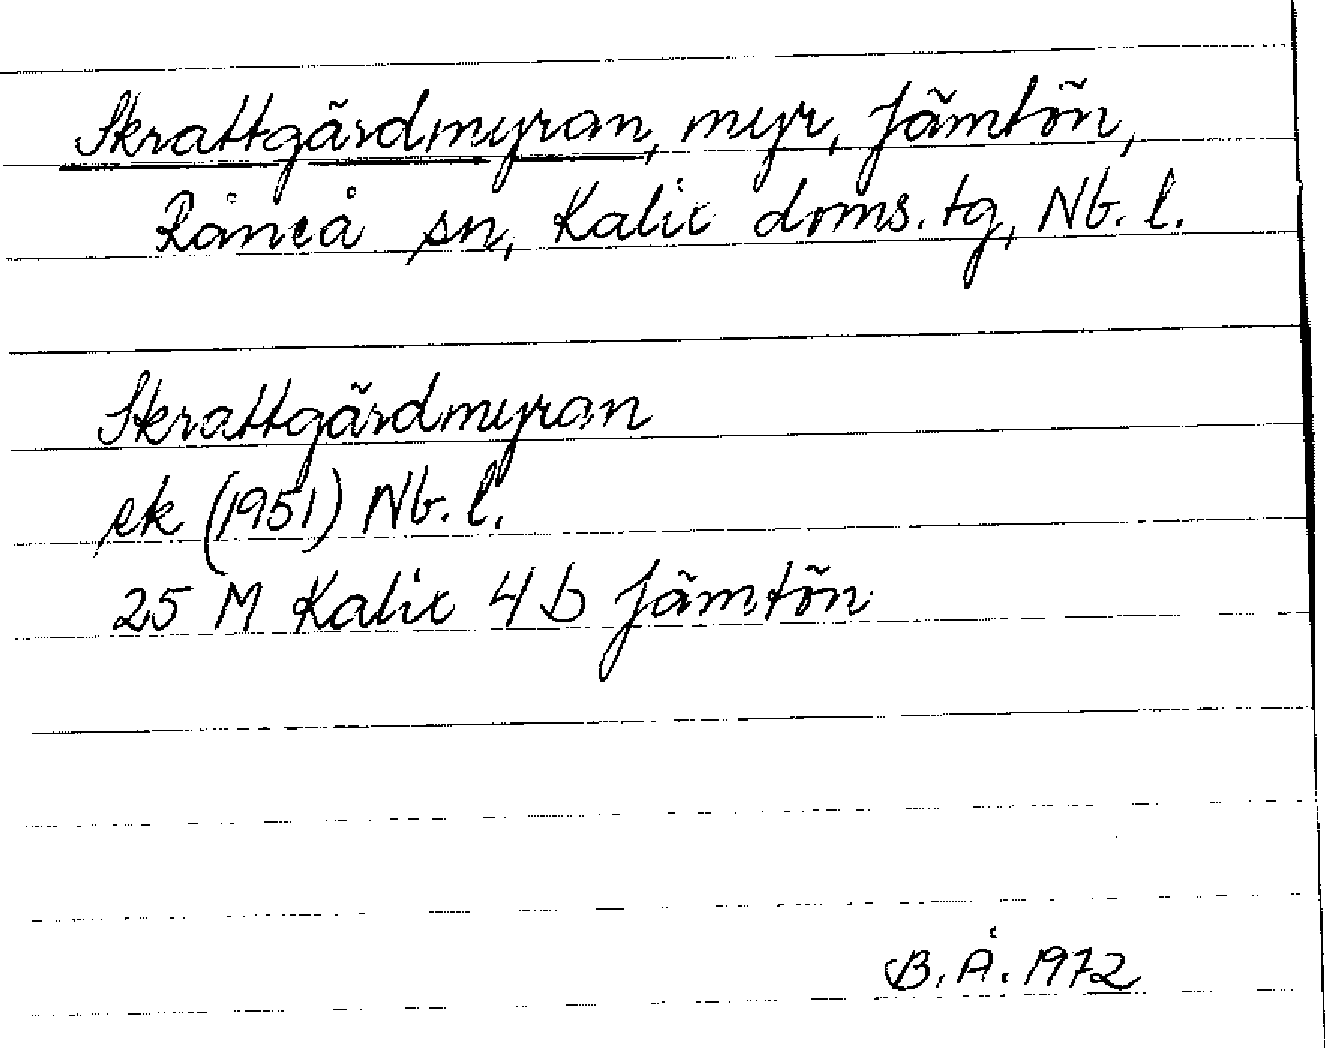 Skrattgärdmyran, myr, Jämtön,
Råneå sn, Kalix doms. tg, Nb. l.
Skrattgärdmyran
ek (1951) Nb. l.
25 M Kalix 4 b Jämtön
B. Å. 1972